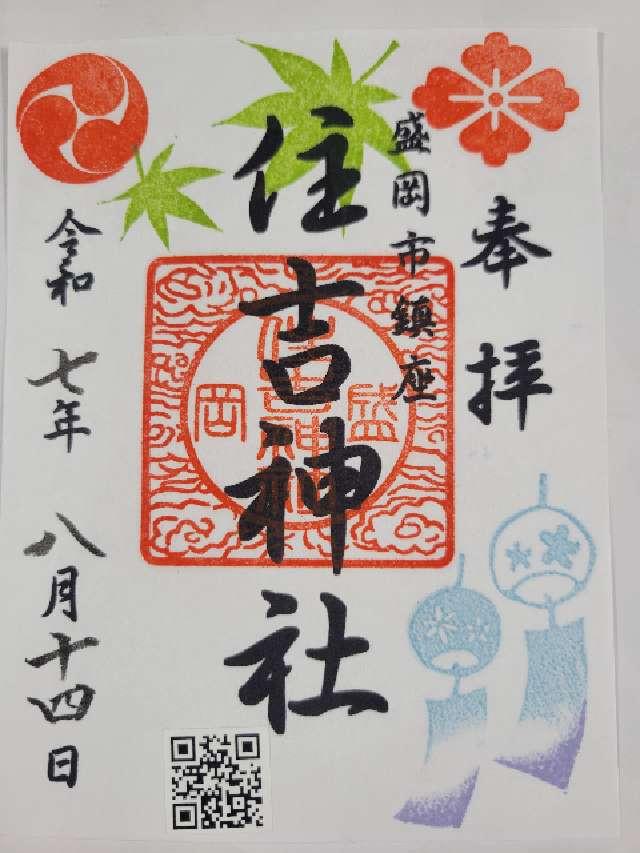 奉拝
盛岡市鎮座
住吉神社
盛岡
住吉神社
令和七年八月十四日